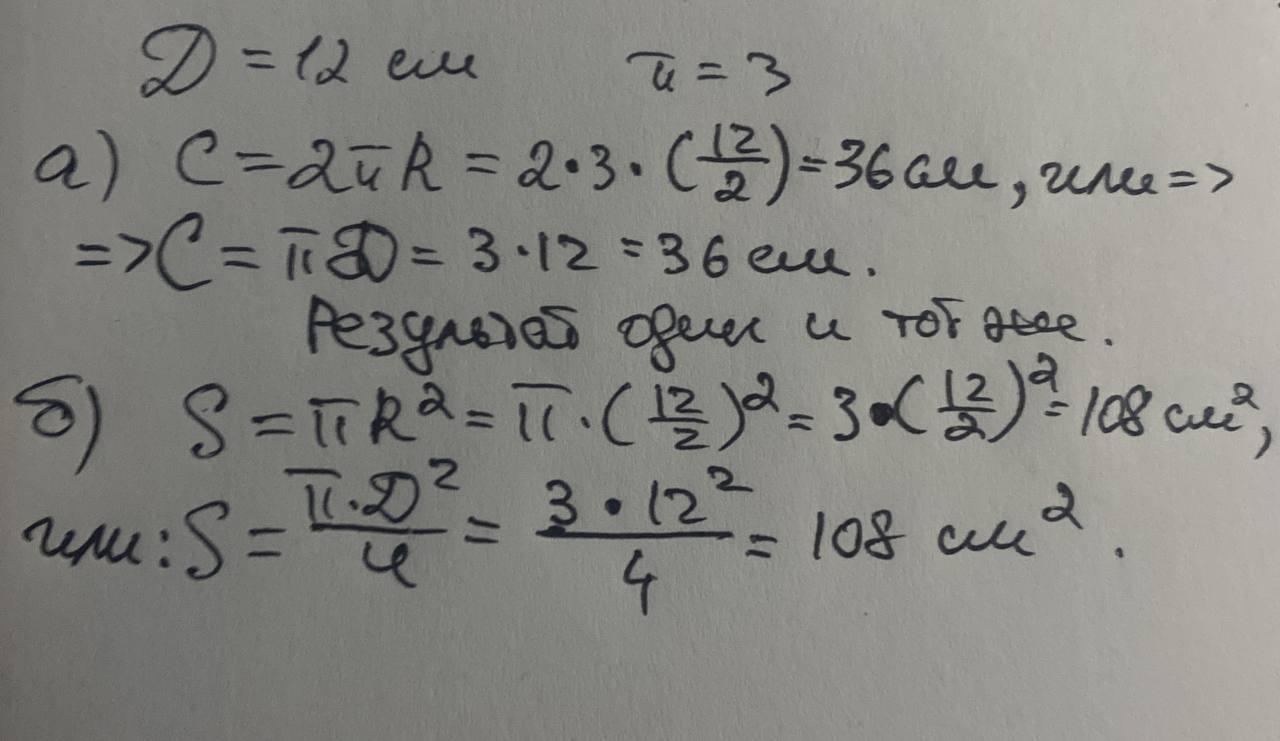 D = 12 см π = 3
а) C = 2πR = 2·3·(12/2) = 36 см, или =>
=> C = πD = 3·12 = 36 см.
Результат один и тот же.
б) S = πR² = π·(12/2)² = 3·(12/2)² = 108 см²,
или: S = π·D²/4 = 3·12²/4 = 108 см².